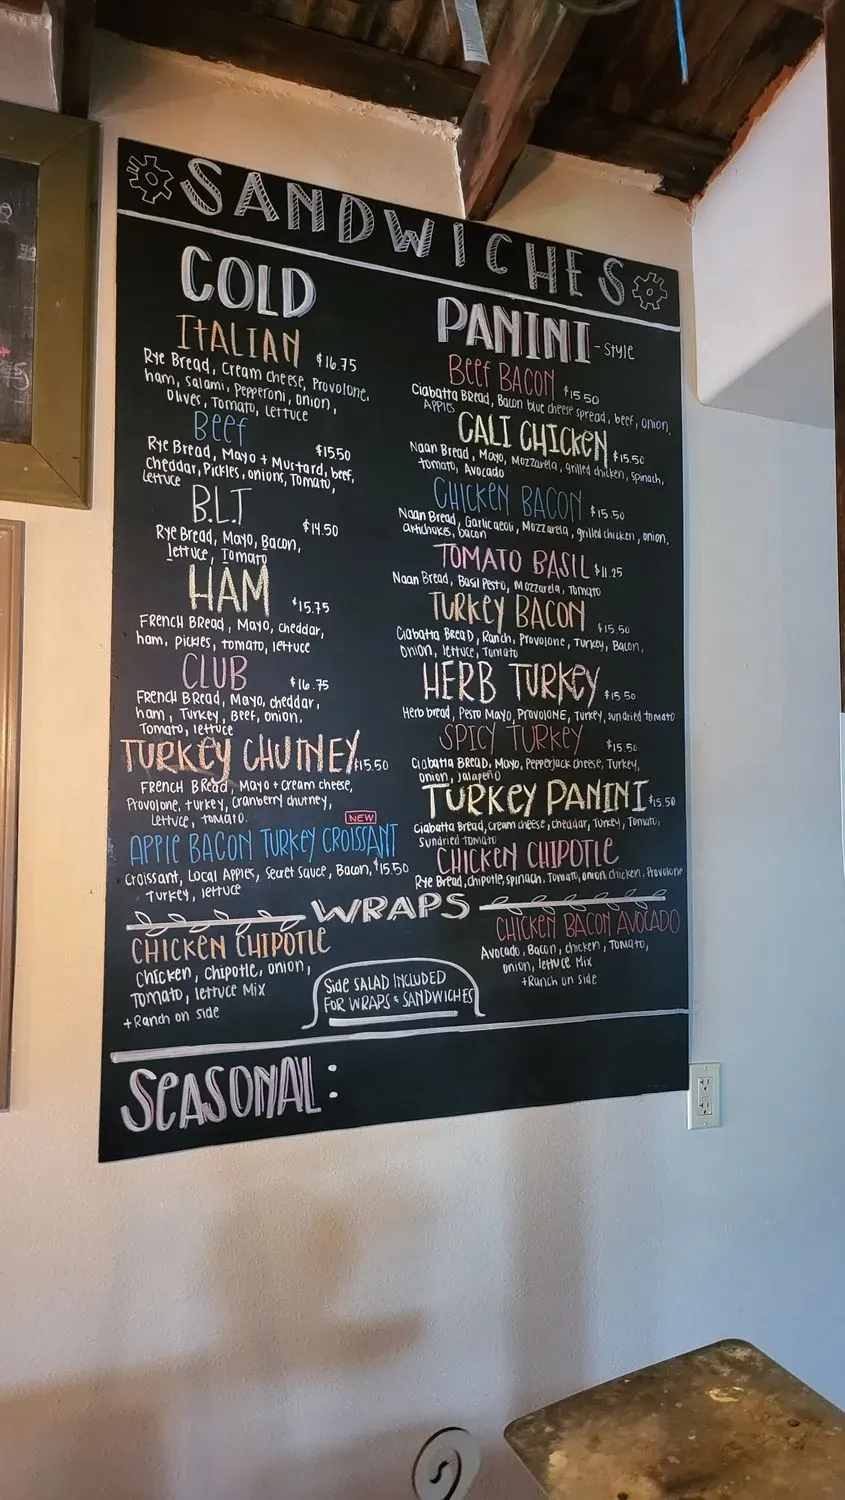 SANDWICHES
COLD
ITALIAN $16.75
Rye Bread, Cream cheese, Provolone,
ham, salami, pepperoni, onion,
Olives, Tomato, lettuce
Beef $15.50
Rye Bread, Mayo + Mustard, beef,
cheddar, Pickles, onions, Tomato,
lettuce
B.L.T $14.50
Rye Bread, Mayo, Bacon,
lettuce, Tomato
HAM $15.75
FRENCH BREAD, Mayo, cheddar,
ham, pickles, tomato, lettuce
CLUB $16.75
FRENCH BREAD, Mayo, cheddar,
ham, Turkey, Beef, onion,
Tomato, lettuce
TURKEY CHUTNEY $15.50
FRENCH BREAD, Mayo + cream cheese,
Provolone, turkey, cranberry chutney,
lettuce, tomato.
NEW
APPLE BACON TURKEY CROISSANT
Croissant, Local Apples, Secret Sauce, Bacon, $15.50
Turkey, lettuce
PANINI - style
Beef BACON $15.50
Ciabatta Bread, Bacon blue cheese spread, beef, onion,
Apples
CALI CHICKEN $15.50
Naan Bread, Mayo, Mozzarela, grilled chicken, spinach,
tomato, Avocado
CHICKEN BACON $15.50
Naan Bread, Garlic aeoli, Mozzarela, grilled chicken, onion,
artichokes, bacon
TOMATO BASIL $11.25
Naan Bread, Basil Pesto, Mozzarela, Tomato
TURKEY BACON $15.50
Ciabatta BreaD, Ranch, Provolone, Turkey, Bacon,
Onion, lettuce, Tomato
HERB TURKEY $15.50
Herb bread, Pesto Mayo, PROVOLONE, Turkey, sundried tomato
SPICY TURKEY $15.50
Ciabatta BreaD, Mayo, Pepperjack cheese, Turkey,
onion, jalapeño
TURKEY PANINI $15.50
Ciabatta Bread, cream cheese, cheddar, Turkey, Tomato,
Sundried tomato
CHICKEN CHIPOTLE
Rye Bread, chipotle, spinach, Tomato, onion chicken, Provolone
WRAPS
CHICKEN CHIPOTLE
Chicken, Chipotle, onion,
Tomato, lettuce Mix
+Ranch on side
Side SALAD INCLUDED
FOR WRAPS & SANDWICHES
CHICKEN BACON AVOCADO
Avocado, Bacon, chicken, Tomato,
onion, lettuce Mix
+Ranch on side
SEASONAL: